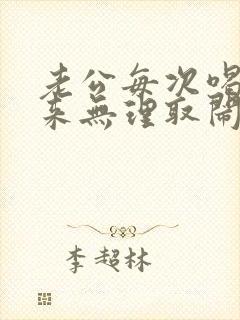 老公每次喝
来無理取鬧
李超林